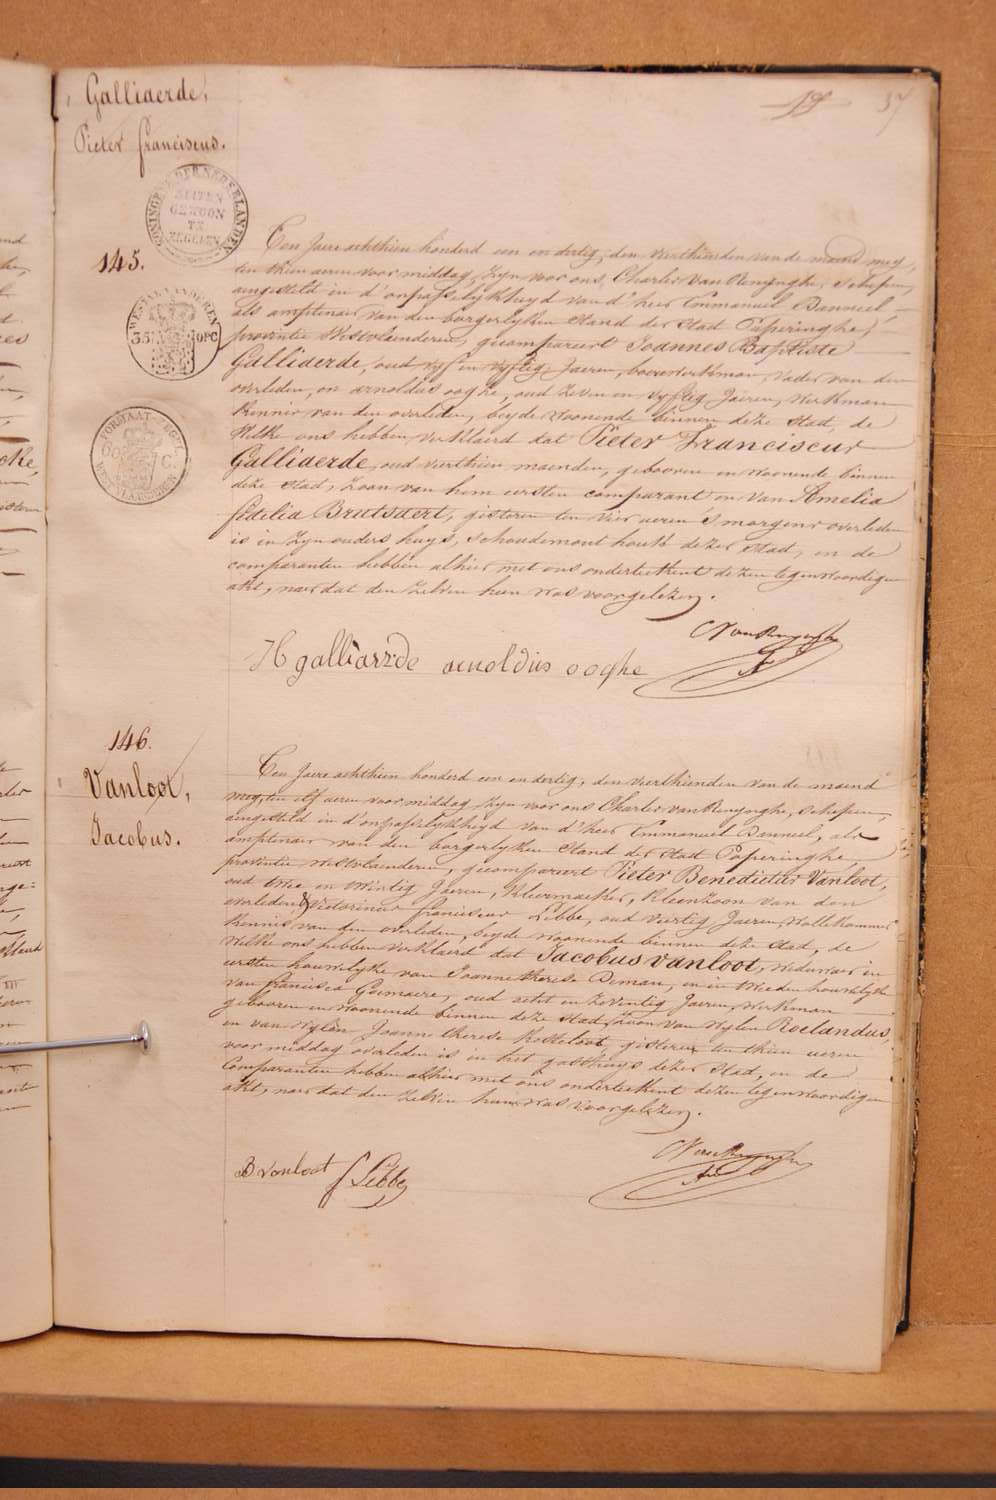 19 37
Galliaerde,
Pieter Franciscus.
KONINGRYK DER NEDERLANDEN
BUITEN
GEWOON
TE
ZEGELEN
145.
WEST VLAANDEREN
35 OPC
FORMAAT ZEGEL
WEST VLAANDEREN
Een Jaere achthien honderd een en dertig, den veerthienden van de maend mey,
ten thien ueren voor middag, zyn voor ons, Charles van Renynghe, Schepen,
aengesteld in d'onpasselykheyd van d'heer Emmanuel Danneel,
als amptenaer van den borgerlyken stand der Stad Poperinghe,
provintie Westvlaenderen, gecompareert Joannes Baptiste
Galliaerde, oud vyf en vyftig Jaeren, werkman, vader van den
overleden, en arnoldus ooghe, oud zeven en vyftig Jaeren, werkman
kennis van den overleden, beyde woonende binnen deze Stad, de
Welke ons hebben verklaerd dat Pieter Franciscus
Galliaerde, oud veerthien maenden, gebooren en woonende binnen
deze stad, zoon van hem eersten comparant en van Amelia
fidelia Brutsaert, gisteren ten vier ueren 's morgens overleden
is in zyn ouders huys, Schoudemont houk dezer Stad, en de
comparanten hebben alhier met ons onderteekent dezen tegenwoordigen
akt, naer dat den zelven hun was voorgelezen.
galliarde arnoldus ooghe CVanRenynghe
146.
Vanloot,
Jacobus.
Een Jaere achthien honderd een en dertig, den veerthienden van de maend
mey, ten elf ueren voor middag zyn voor ons Charles van Renynghe, Schepen,
aengesteld in d'onpasselykheyd van d'heer Emmanuel Danneel, als
amptenaer van den borgerlyken stand der Stad Poperinghe,
provintie westvlaenderen, gecompareert Pieter Benedictus Vanloot,
oud twee en twintig Jaeren, kleermaeker, kleenzoon van den
overleden & Victorinus franciscus Libbe, oud viertig Jaeren, wollekammer
kennis van den overleden, beyde woonende binnen deze Stad, de
welke ons hebben verklaerd dat Jacobus vanloot, weduwaer in
eersten houwelyke van Joanne therese Deman, en in tweeden houwelyke
van francisca Goemaere, oud acht en zeventig Jaeren, werkman
gebooren en woonende binnen deze Stad, zoon van wylen Roelandus,
en van wylen Joanne therese Kesteloot, gisteren ten thien ueren
voor middag overleden is in het gasthuys dezer Stad, en de
Comparanten hebben alhier met ons onderteekent dezen tegenwoordigen
akt, naer dat den zelven hun was voorgelezen.
B vanloot f Libbe CVanRenynghe